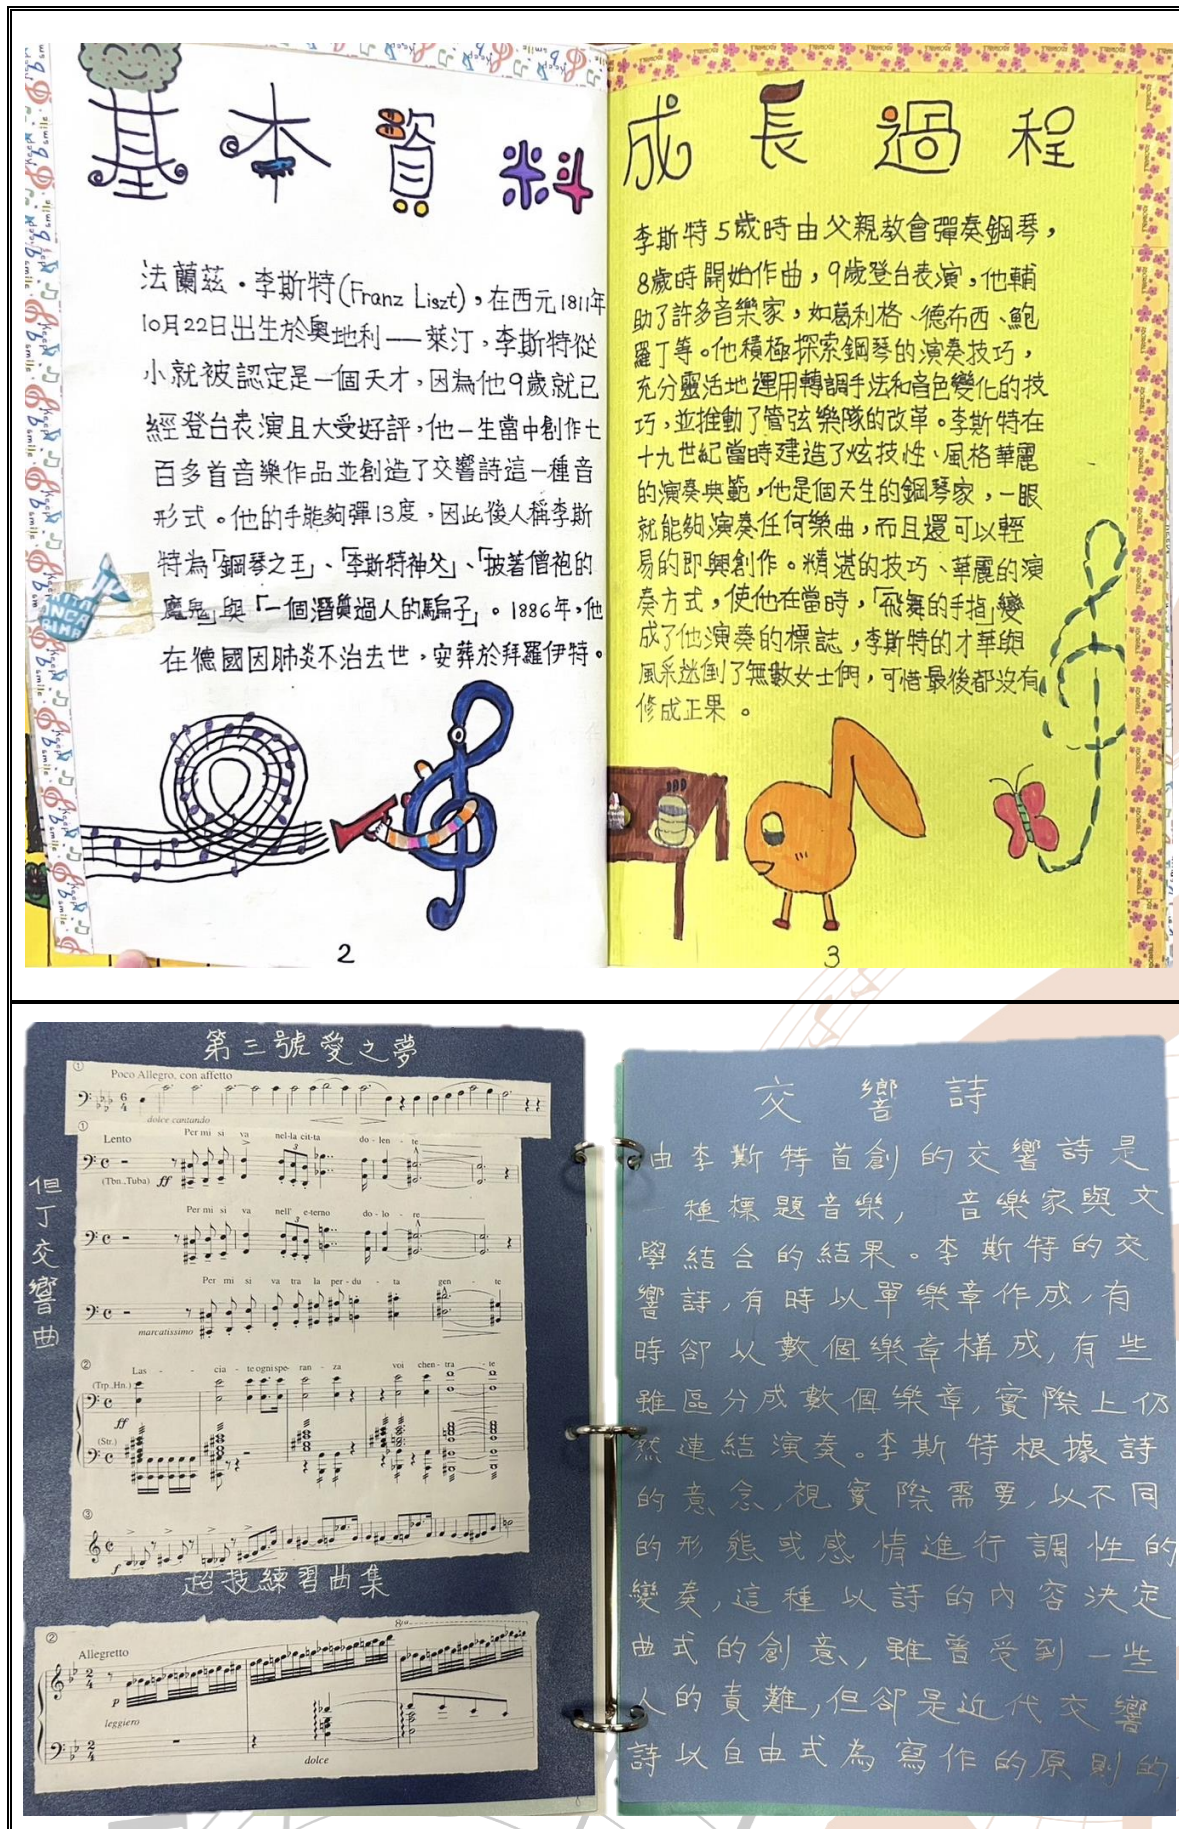 基本資料
法蘭茲・李斯特(Franz Liszt)，在西元1811年
10月22日出生於奧地利——萊汀，李斯特從
小就被認定是一個天才，因為他9歲就已
經登台表演且大受好評，他一生當中創作七
百多首音樂作品並創造了交響詩這一種音
形式。他的手能夠彈13度，因此後人稱李斯
特為「鋼琴之王」、「李斯特神父」、「披著僧袍的
魔鬼」與「一個潛質過人的騙子」。1886年，他
在德國因肺炎不治去世，安葬於拜羅伊特。
2
成長過程
李斯特5歲時由父親教會彈奏鋼琴，
8歲時開始作曲，9歲登台表演，他輔
助了許多音樂家，如葛利格、德布西、鮑
羅丁等。他積極探索鋼琴的演奏技巧，
充分靈活地運用轉調手法和音色變化的技
巧，並推動了管弦樂隊的改革。李斯特在
十九世紀當時建造了炫技性、風格華麗
的演奏典範，他是個天生的鋼琴家，一眼
就能夠演奏任何樂曲，而且還可以輕
易的即興創作。精湛的技巧、華麗的演
奏方式，使他在當時，「飛舞的手指」變
成了他演奏的標誌，李斯特的才華與
風采迷倒了無數女士們，可惜最後都沒有
修成正果。
3
第三號愛之夢
①
Poco Allegro, con affetto
dolce cantando
但丁交響曲
①
Lento
Per mi si va nel-la cit-ta do - len - te
(Tbn.,Tuba) ff
Per mi si va nell' e-terno do - lo - re
Per mi si va tra la per - du - ta gen - te
marcatissimo
②
Las - cia - te ogni spe - ran - za voi chen - tra - te
(Trp.,Hn.)
ff
(Str.)
③
f
超技練習曲集
②
Allegretto
8va
p
leggiero
dolce
交響詩
由李斯特首創的交響詩是
種標題音樂, 音樂家與文
學結合的結果。李斯特的交
響詩,有時以單樂章作成,有
時卻以數個樂章構成,有些
雖區分成數個樂章,實際上仍
然連結演奏。李斯特根據詩
的意念,視實際需要,以不同
的形態或感情進行調性的
變奏,這種以詩的內容決定
曲式的創意,雖曾受到一些
人的責難,但卻是近代交響
詩以自由式為寫作的原則的